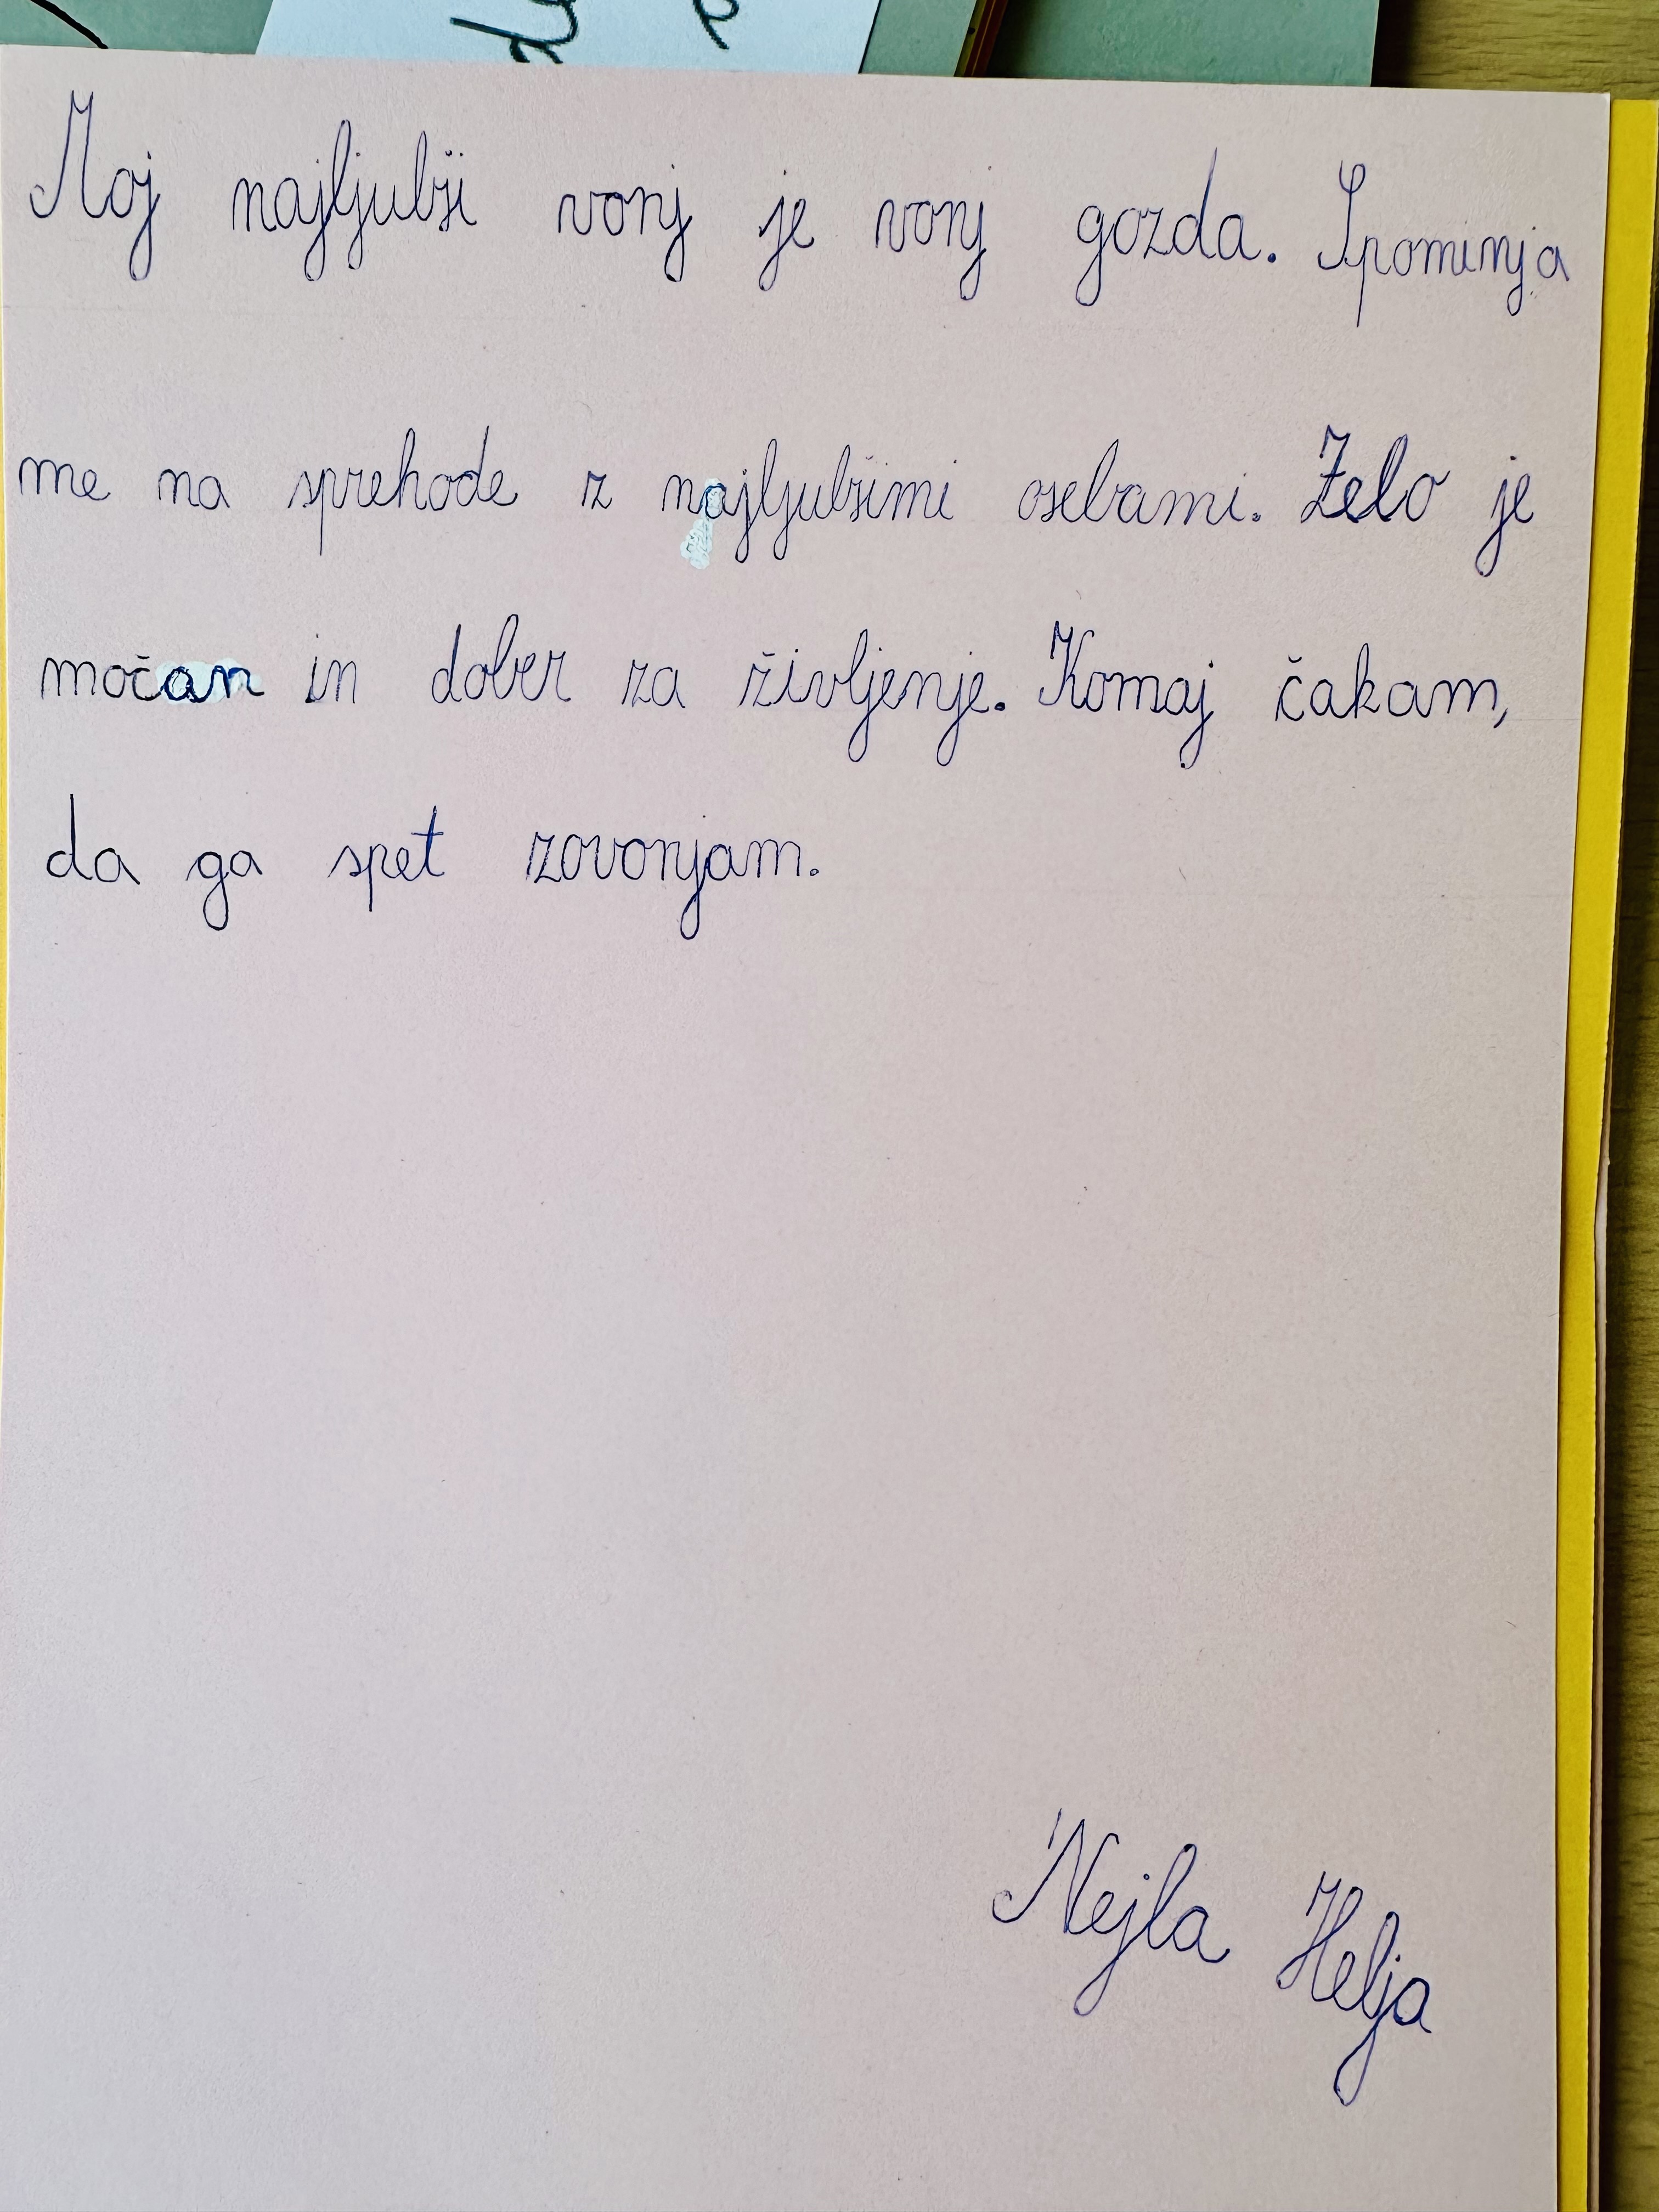 Moj najljubši vonj je vonj gozda. Spominja
me na sprehode z najljubšimi osebami. Zelo je
močan in dober za življenje. Komaj čakam,
da ga spet zovonjam.
Nejla Helja